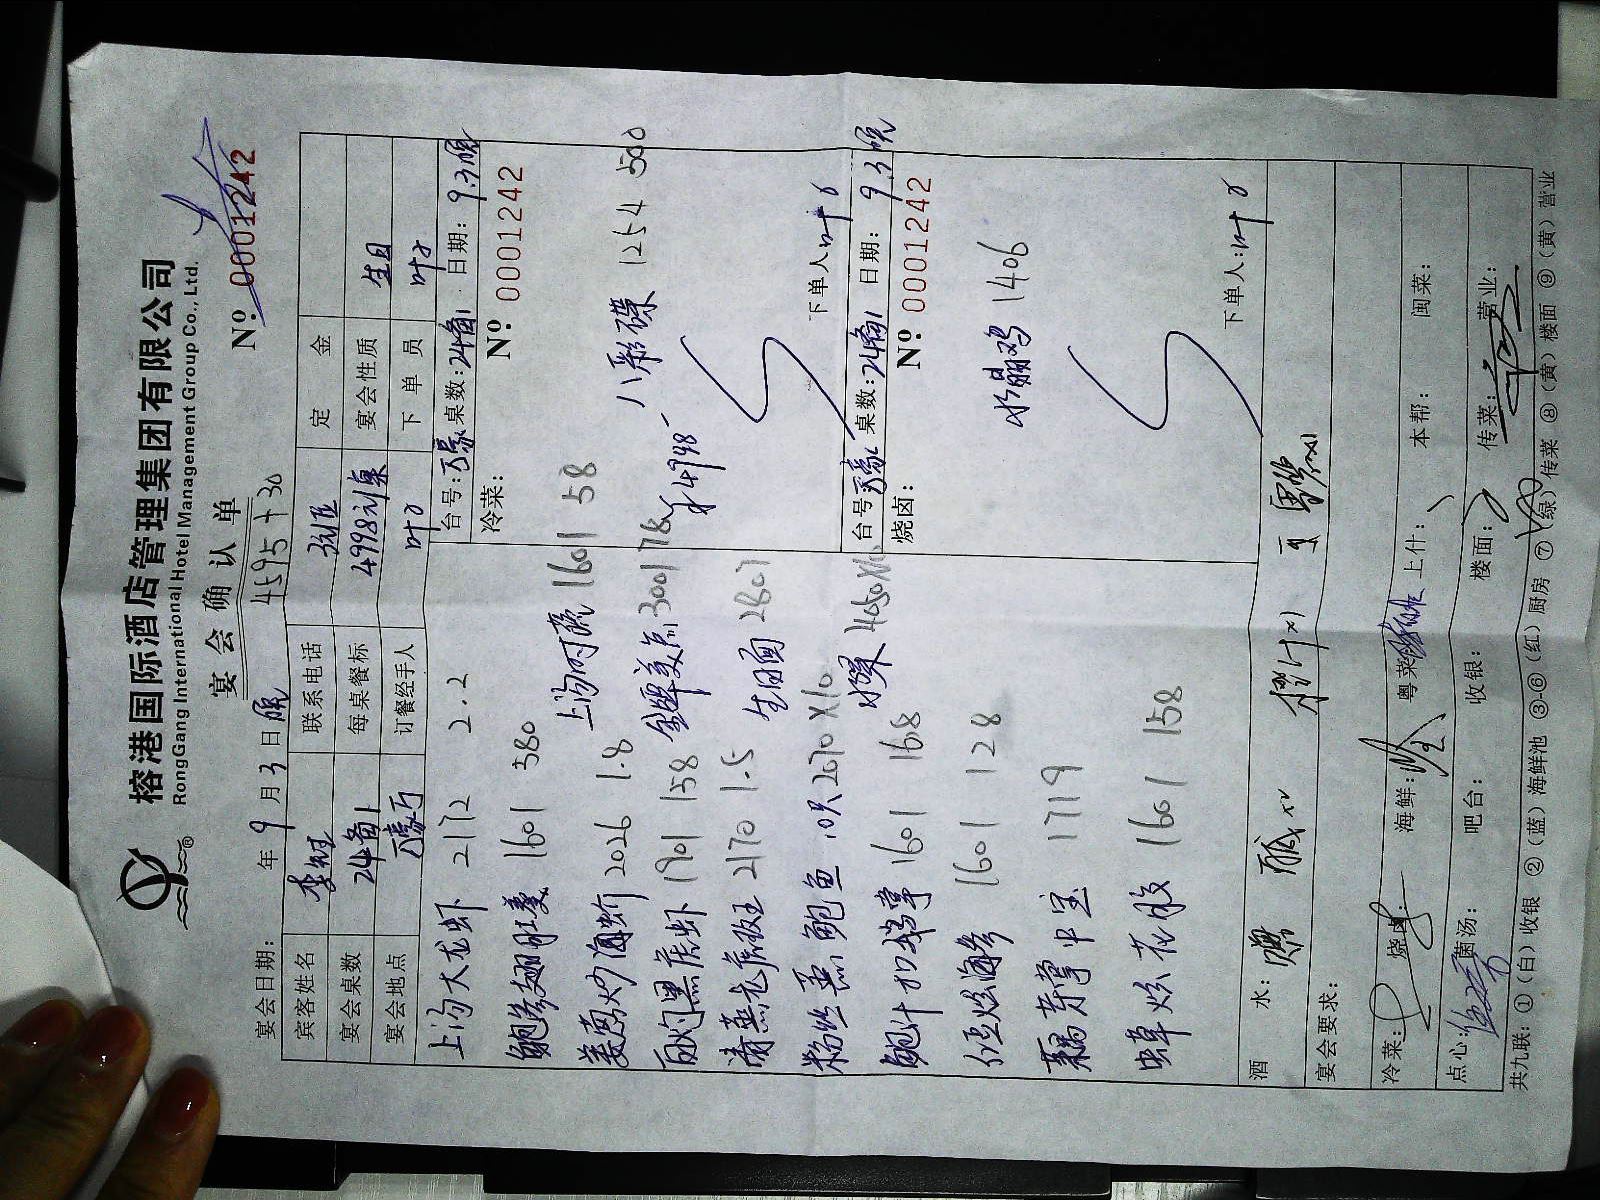 榕港国际酒店管理集团有限公司
RongGang International Hotel Management Group Co., Ltd.
宴会确认单
Nº 0001242
宴会日期: 年 9 月 3 日 晚 4595+30
宾客姓名 李 联系电话 定金
宴会桌数 24备1 每桌餐标 4998 宴会性质 生日
宴会地点 订餐经手人 叶 下单员 叶
台号: 桌数: 24备1 日期: 9.3晚
冷菜: Nº 0001242
八彩碟 1254 500
下单人 叶
台号 桌数: 24备1 日期: 9.3晚
烧卤: Nº 0001242
水晶鸡 1406
下单人: 叶
上汤大龙虾 2172 2.2
鲍参翅肚羹 1601 380
姜葱炒海蚧 2026 1.8
白灼黑虎虾 1901 158
清蒸龙虎斑 2170 1.5
粉丝蒸鲍鱼 10只 2070×10
鲍汁扣鹅掌 1601 168
海参 1601 128
1719
虫草炊花胶 1601 158
上汤时蔬 1601 58
美点 3001 78
生日面 2807
水果 4050×10
酒水:
宴会要求:
冷菜: 烧卤: 海鲜: 粤菜: 上什: 本帮: 闽菜:
点心: 菌汤: 吧台: 收银: 楼面: 传菜: 营业:
共九联: ①(白)收银 ②(蓝)海鲜池 ③-⑥(红)厨房 ⑦(绿)传菜 ⑧(黄)楼面 ⑨(黄)营业